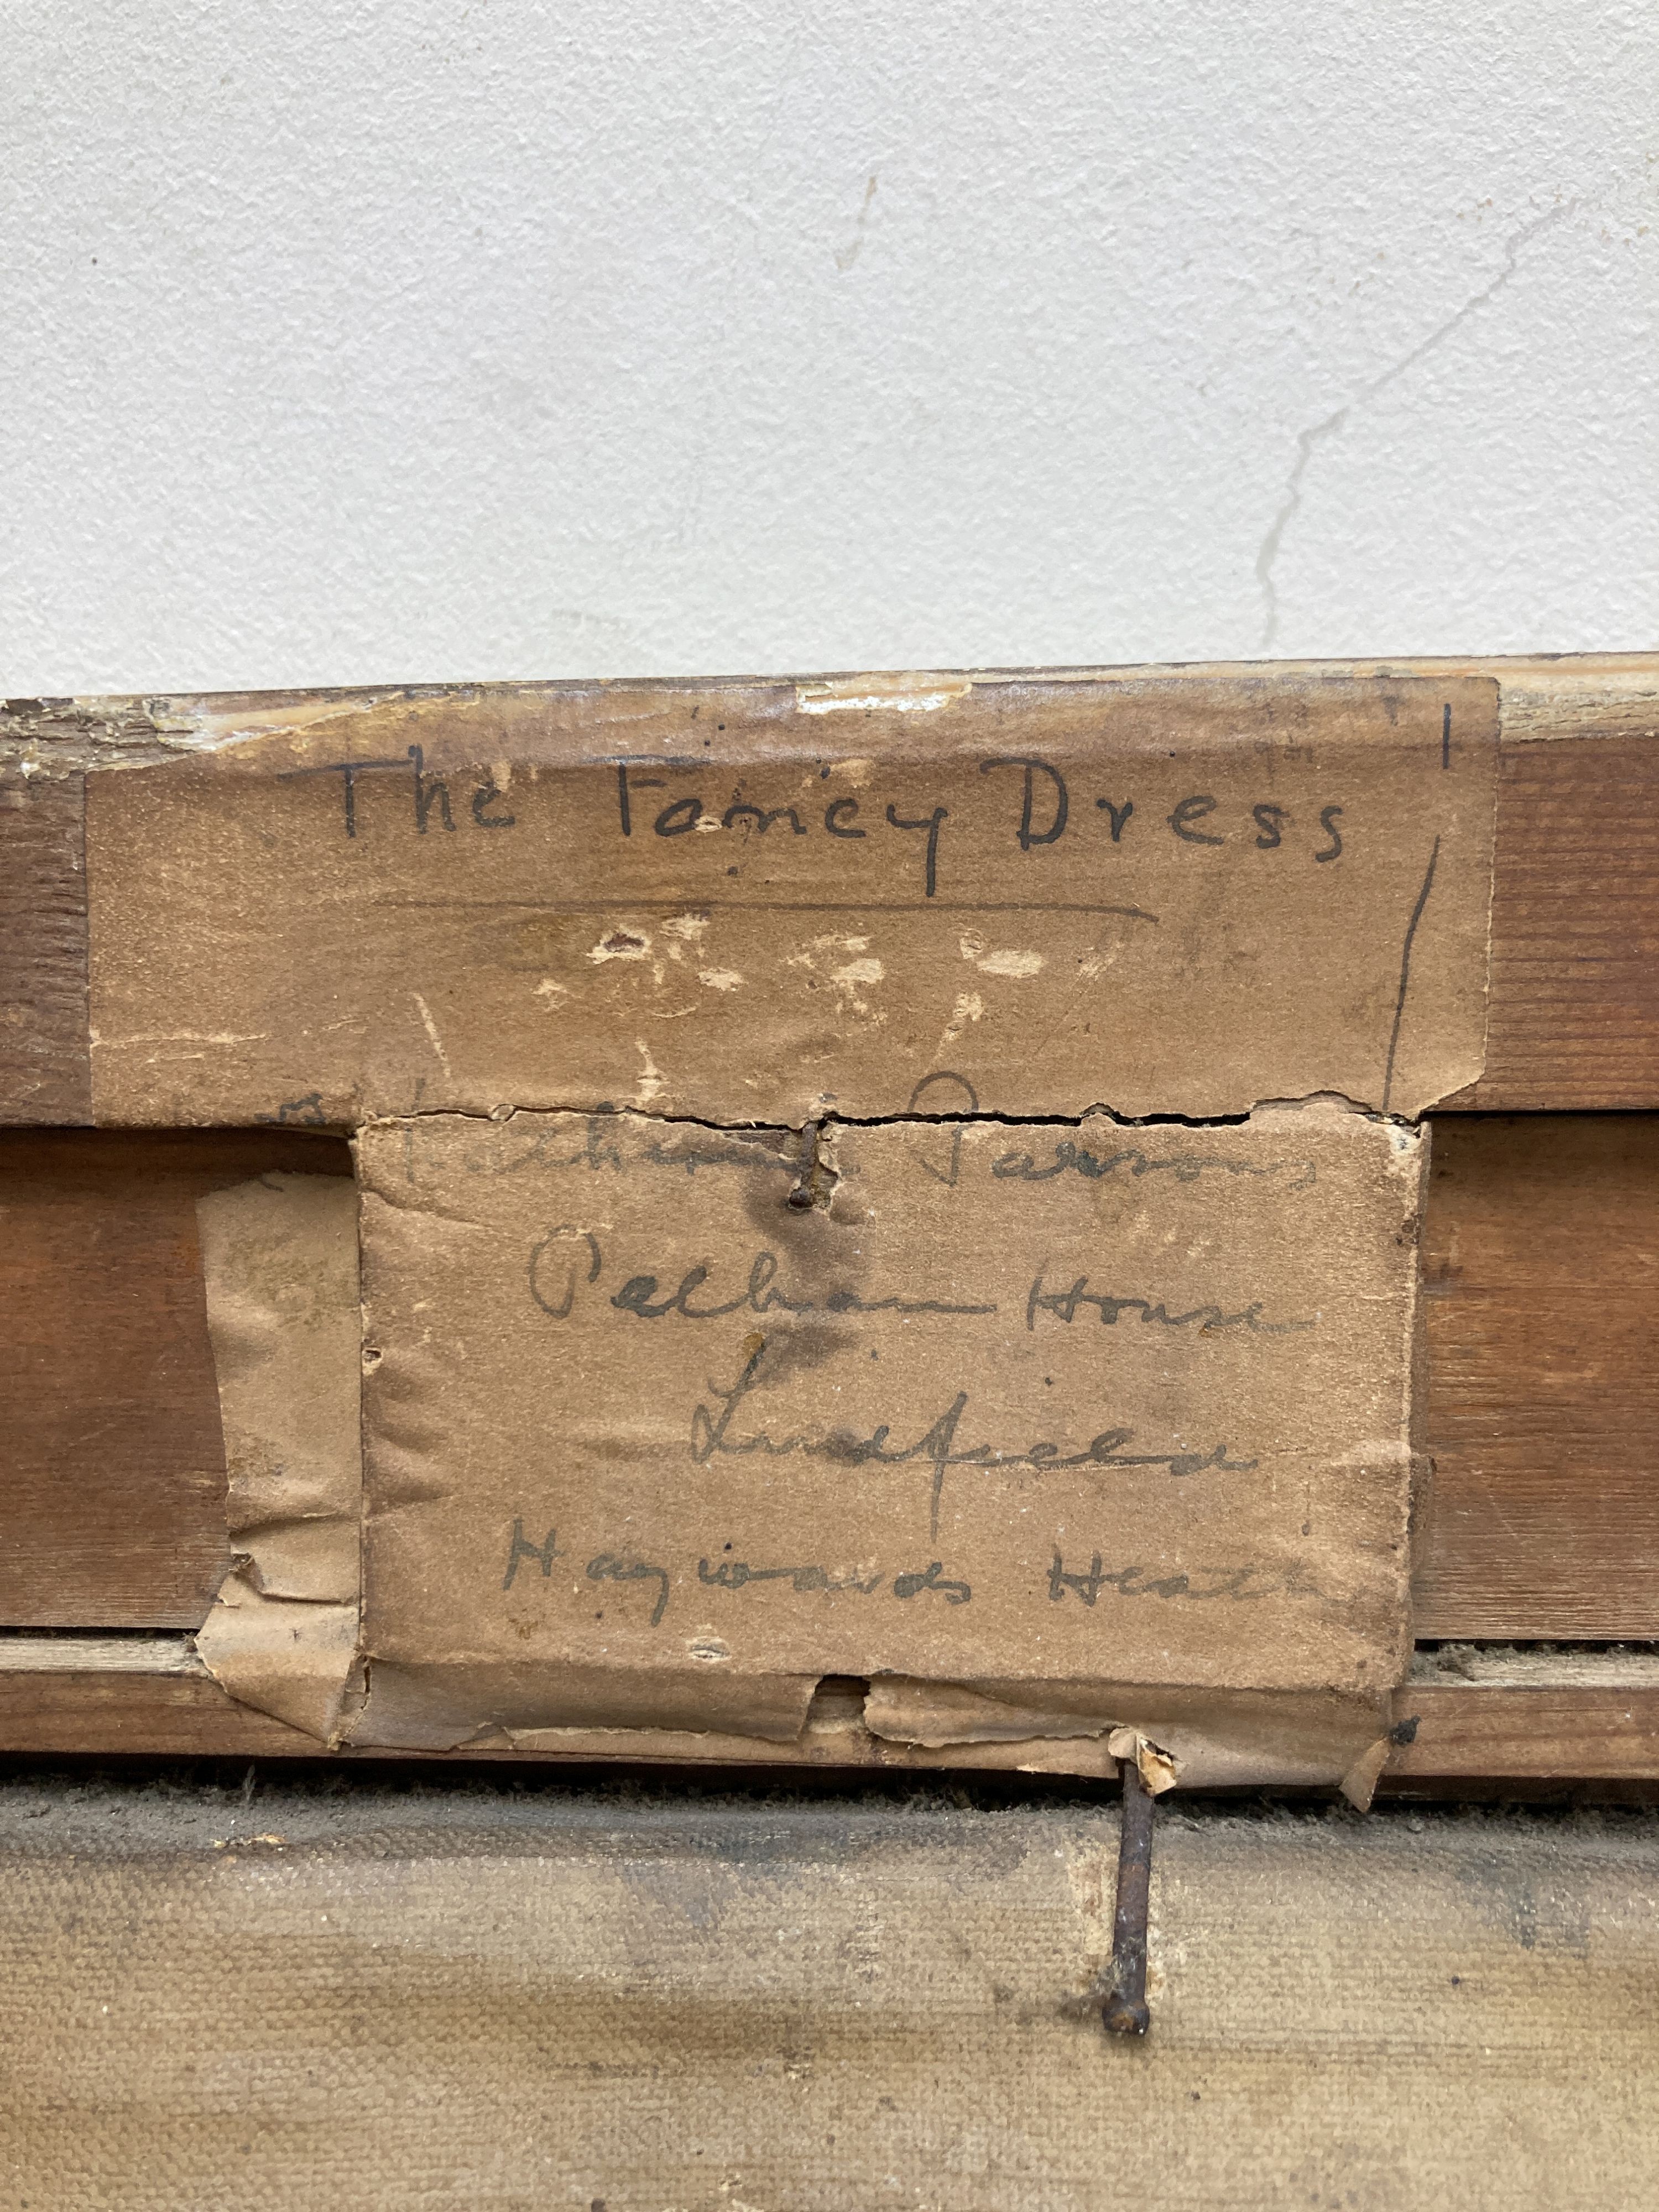 The Fancy Dress
Parsons
Pelham House
Lindfield
Haywards Heath